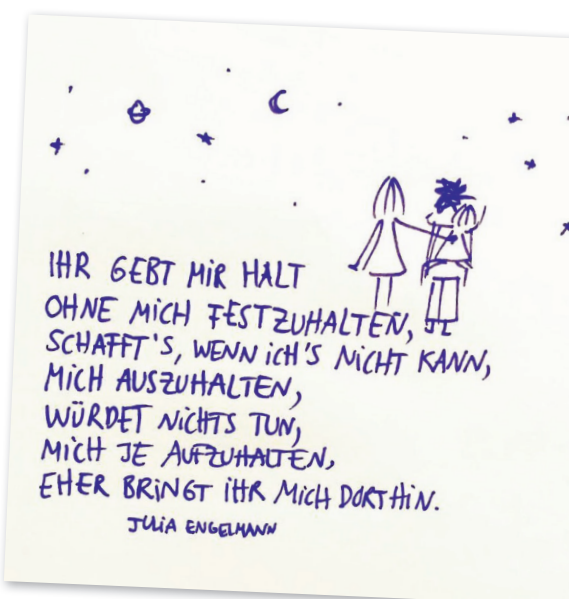 IHR GEBT MIR HALT
OHNE MICH FESTZUHALTEN,
SCHAFFT'S, WENN ICH'S NICHT KANN,
MICH AUSZUHALTEN,
WÜRDET NICHTS TUN,
MICH JE AUFZUHALTEN,
EHER BRINGT IHR MICH DORTHIN.
JULIA ENGELMANN